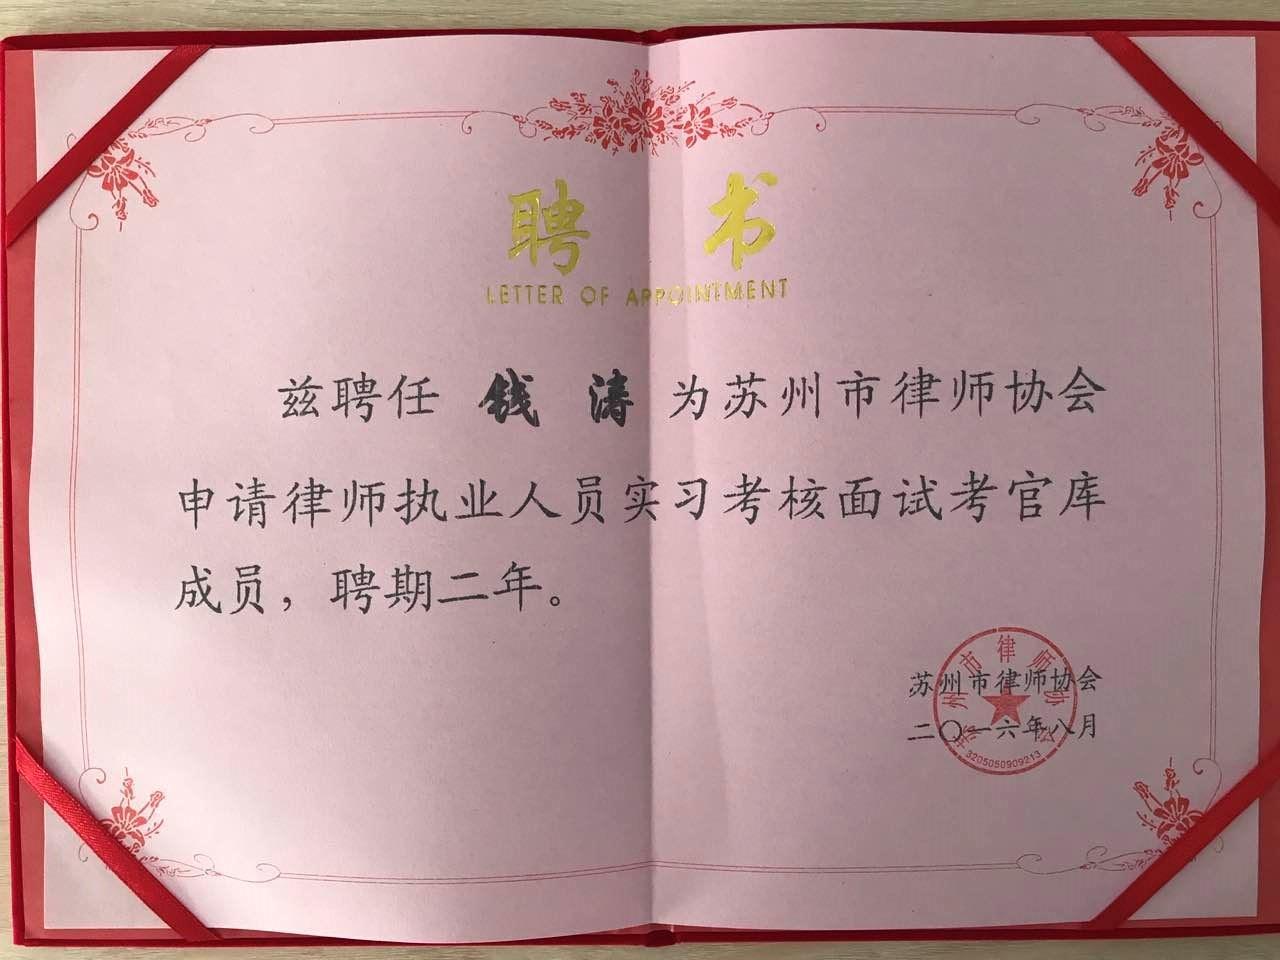 聘 书
LETTER OF APPOINTMENT
兹聘任 钱 涛 为苏州市律师协会
申请律师执业人员实习考核面试考官库
成员，聘期二年。
苏州市律师协会
二〇一六年八月
苏州市律师协会
3205050909213